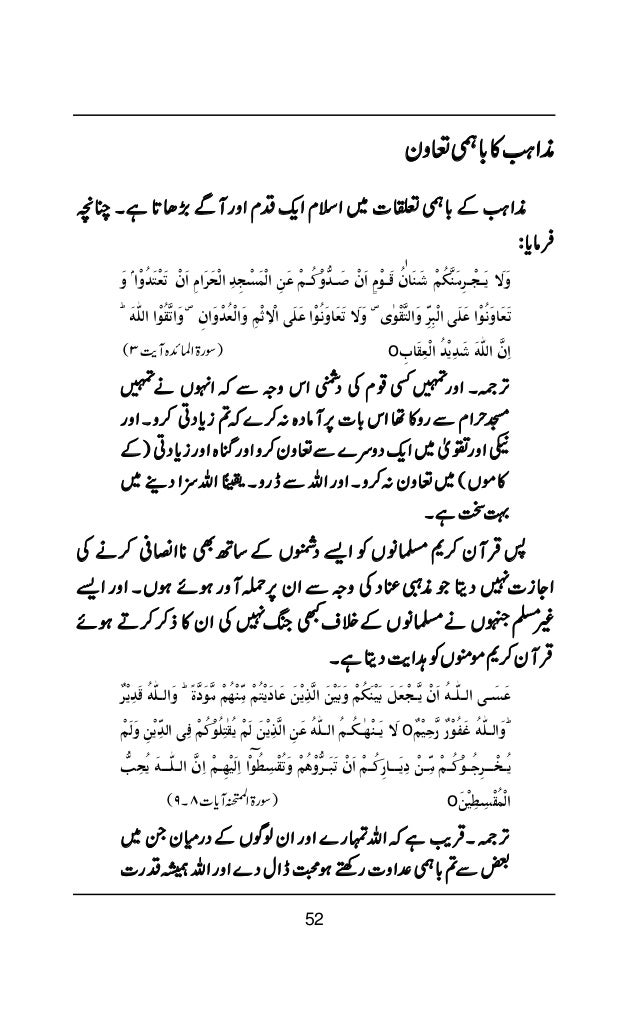 مذاہب کا باہمی تعاون
مذاہب کے باہمی تعلقات میں اسلام ایک قدم اور آگے بڑھاتا ہے۔ چنانچہ
فرمایا:
وَلَا یَـجْـرِمَنَّکُمْ شَنَاٰنُ قَـوْمٍ اَنْ صَـدُّوْکُـمْ عَنِ الْمَسْجِدِ الْحَرَامِ اَنْ تَعْتَدُوْا ۘ وَ
تَعَاوَنُوْا عَلَی الْبِرِّ وَالتَّقْوٰی ۪ وَلَا تَعَاوَنُوْا عَلَی الْاِثْمِ وَالْعُدْوَانِ ۪ وَاتَّقُوا اللّٰہَ ؕ
اِنَّ اللّٰہَ شَدِیْدُ الْعِقَابِO (سورۃ المائدہ آیت ۳)
ترجمہ۔ اور تمہیں کسی قوم کی دشمنی اس وجہ سے کہ انہوں نے تمہیں
مسجد حرام سے روکا تھا اس بات پر آمادہ نہ کرے کہ تم زیادتی کرو۔ اور
نیکی اور تقویٰ میں ایک دوسرے سے تعاون کرو اور گناہ اور زیادتی (کے
کاموں) میں تعاون نہ کرو۔ اور اللہ سے ڈرو۔ یقیناً اللہ سزا دینے میں
بہت سخت ہے۔
پس قرآن کریم مسلمانوں کو ایسے دشمنوں کے ساتھ بھی ناانصافی کرنے کی
اجازت نہیں دیتا جو مذہبی عناد کی وجہ سے ان پر حملہ آور ہوئے ہوں۔ اور ایسے
غیر مسلم جنہوں نے مسلمانوں کے خلاف کبھی جنگ نہیں کی ان کا ذکر کرتے ہوئے
قرآن کریم مومنوں کو ہدایت دیتا ہے۔
عَسَـی اللّٰـہُ اَنْ یَّـجْعَلَ بَیْنَکُمْ وَبَیْنَ الَّذِیْنَ عَادَیْتُمْ مِّنْھُمْ مَّوَدَّةً ؕ وَاللّٰہُ قَدِیْرٌ
ؕ وَاللّٰہُ غَفُوْرٌ رَّحِیْمٌO لَا یَـنْـھٰـکُـمُ اللّٰہُ عَنِ الَّذِیْنَ لَمْ یُقَاتِلُوْکُمْ فِی الدِّیْنِ وَلَمْ
یُـخْـرِجُـوْکُـمْ مِّـنْ دِیَـارِکُـمْ اَنْ تَبَـرُّوْھُمْ وَتُقْسِطُوْۤا اِلَیْھِمْ اِنَّ اللّٰـہَ یُحِبُّ
الْمُقْسِطِیْنَO (سورۃ الممتحنہ آیات ۸۔۹)
ترجمہ۔ قریب ہے کہ اللہ تمہارے اور ان لوگوں کے درمیان جن میں
بعض سے تم باہمی عداوت رکھتے ہو محبت ڈال دے اور اللہ ہمیشہ قدرت
52